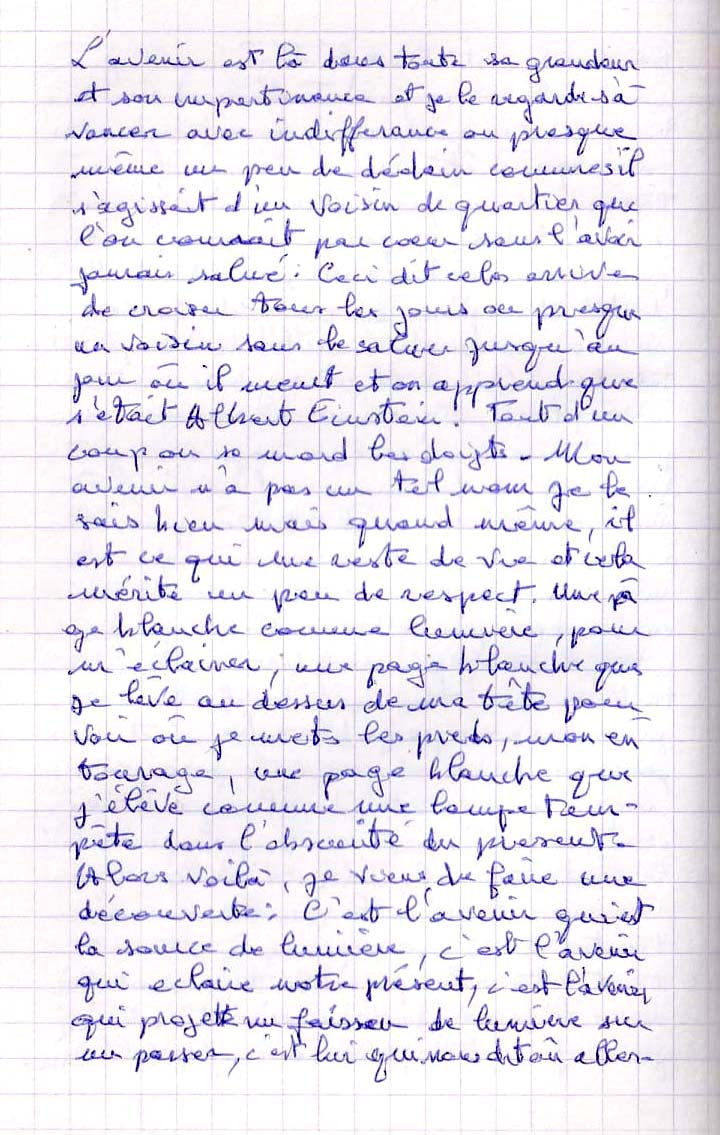 L'avenir est là dans toute sa grandeur
et son impertinence et je le regarde s'a
vancer avec indifferance ou presque
même un peu de dédain comme s'il
s'agissait d'un voisin de quartier que
l'on connaît par coeur sans l'avoir
jamais salué. Ceci dit cela arrive
de croiser tous les jours ou presque
un voisin sans le saluer jusqu'au
jour où il meurt et on apprend que
s'était Albert Einstein. Tout d'un
coup on se mord les doigts. Mon
avenir n'a pas un tel nom je le
sais bien mais quand même, il
est ce qui me reste de vie et cela
mérite un peu de respect. Une pa
ge blanche comme lumière, pour
m'éclairer, une page blanche que
je lève au dessus de ma tête pour
voir où je mets les pieds, mon en
tourage, une page blanche que
j'élève comme une lampe tem-
pête dans l'obscurité du présent.
Alors voilà, je viens de faire une
découverte: C'est l'avenir qui est
la source de lumière, c'est l'avenir
qui eclaire notre présent, c'est l'avenir
qui projette un faisseau de lumière sur
un passer, c'est lui qui nous dit où aller-